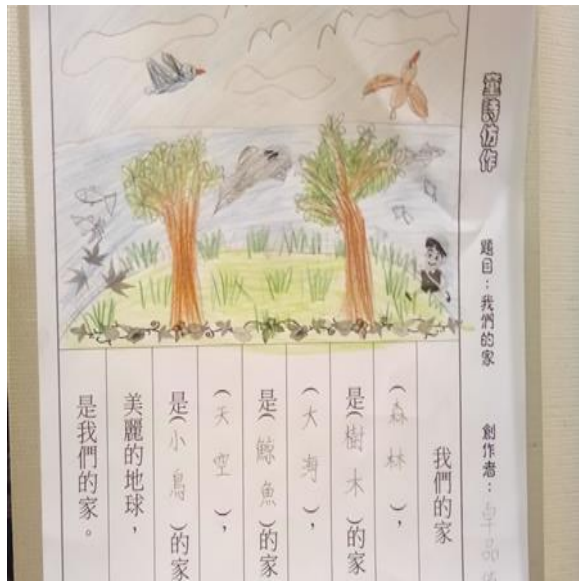 童詩仿作 題目:我們的家 創作者:
我們的家
(森林),
是(樹木)的家
(大海),
是(鯨魚)的家
(天空),
是(小鳥)的家
美麗的地球,
是我們的家。